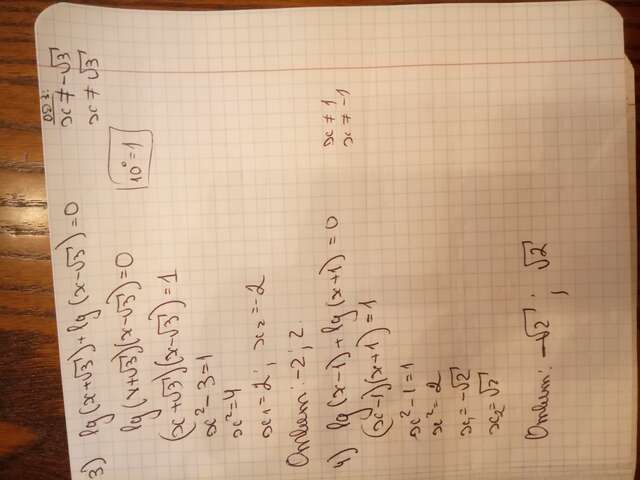 3) lg(x+√3)+lg(x-√3)=0
ОДЗ:
x≠-√3
x≠√3
lg(x+√3)(x-√3)=0
10⁰=1
(x+√3)(x-√3)=1
x²-3=1
x²=4
x₁=2; x₂=-2
Ответ: -2; 2.
4) lg(x-1)+lg(x+1)=0
x≠1
x≠-1
(x-1)(x+1)=1
x²-1=1
x²=2
x₁=-√2
x₂=√2
Ответ: -√2; √2